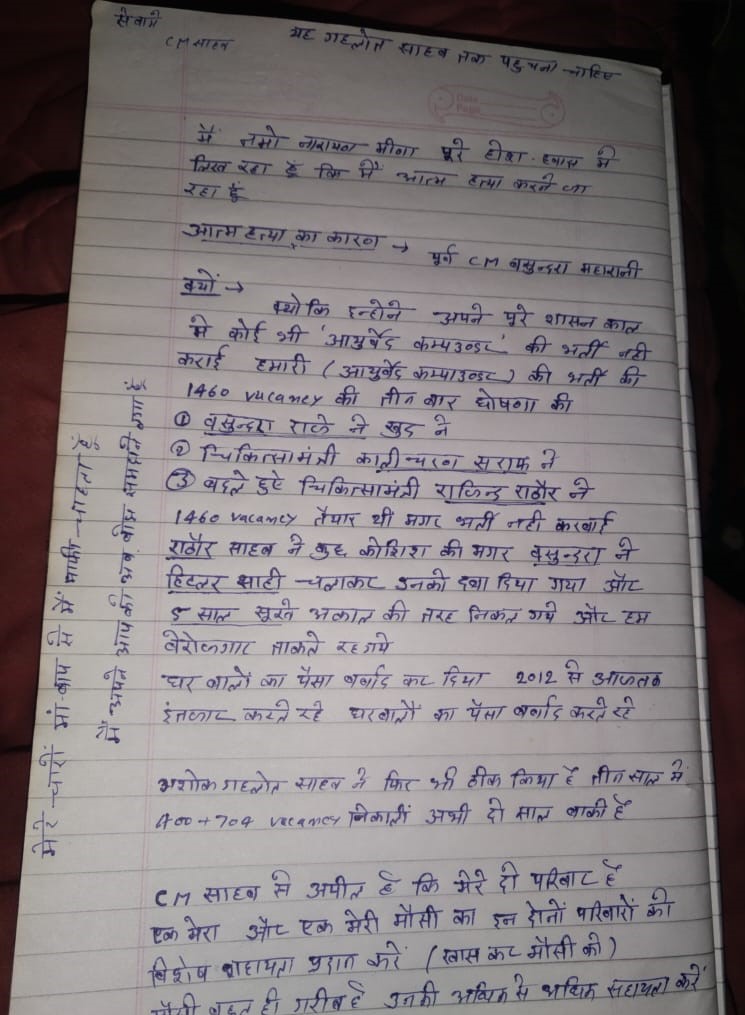 सेवामे
CM साहब
यह गहलोत साहब तक पहुचना चाहिए
Date
Page
मैं नमो नारायण मीना पूरे होश-हवास मे
लिख रहा हूँ कि मैं आत्म हत्या करने जा
रहा हूँ
आत्म हत्या का कारण → पूर्व CM वसुन्दरा महारानी
क्यों →
क्योकि इन्होने अपने पूरे शासन काल
मे कोई भी 'आयुर्वेद कम्पाउन्डर' की भर्ती नही
कराई हमारी (आयुर्वेद कम्पाउन्डर) की भर्ती की
1460 vacancy की तीन बार घोषणा की
① वसुन्दरा राजे ने खुद ने
② चिकित्सामंत्री कालीचरण सराफ ने
③ बदले हुटे चिकित्सामंत्री राजेन्द्र राठौर ने
1460 vacancy तैयार थी मगर भर्ती नही करवाई
राठौर साहब ने कुछ कोशिश की मगर वसुन्दरा ने
हिटलर साही चलाकर उनको दबा दिया गया और
5 साल सूखे अकाल की तरह निकल गये और हम
बेरोजगार ताकते रह गये
घर वालों का पैसा बर्बाद कर दिया 2012 से आजतक
इंतजार करते रहे घरवालों का पैसा बर्बाद करते रहे
अशोक गहलोत साहब ने फिर भी ठीक किया है तीन साल में
400+704 vacancy निकाली अभी दो साल बाकी है
CM साहब से अपील है कि मेरे दो परिवार है
एक मेरा और एक मेरी मौसी का इन दोनों परिवारों को
विशेष सहायता प्रदान करें (खास कर मौसी को)
मौसी बहुत ही गरीब है उनकी अधिक से अधिक सहायता करें
मेरे चारों मां-बाप से में माफी चाहता हूँ
मैं अपने आप को अब बोझ समझने लगा हूँ